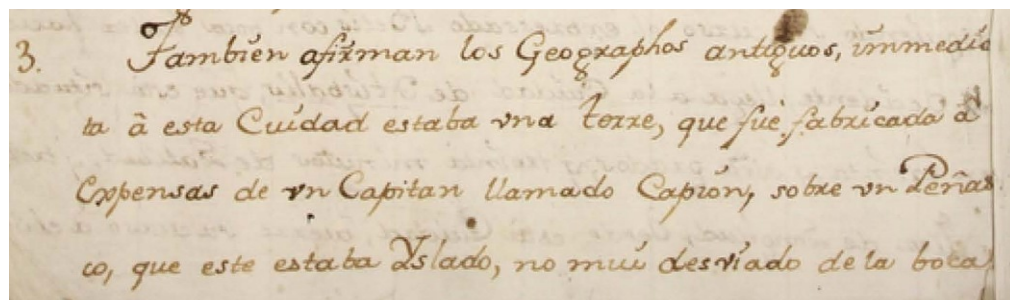 3. Tambien afirman los Geographos antiguos, immedia
ta â esta Cuidad estaba vna torre, que fue fabricada â
Expensas de vn Capitan llamado Capion, sobre vn Peñas
co, que este estaba Yslado, no mui desviado de la boca